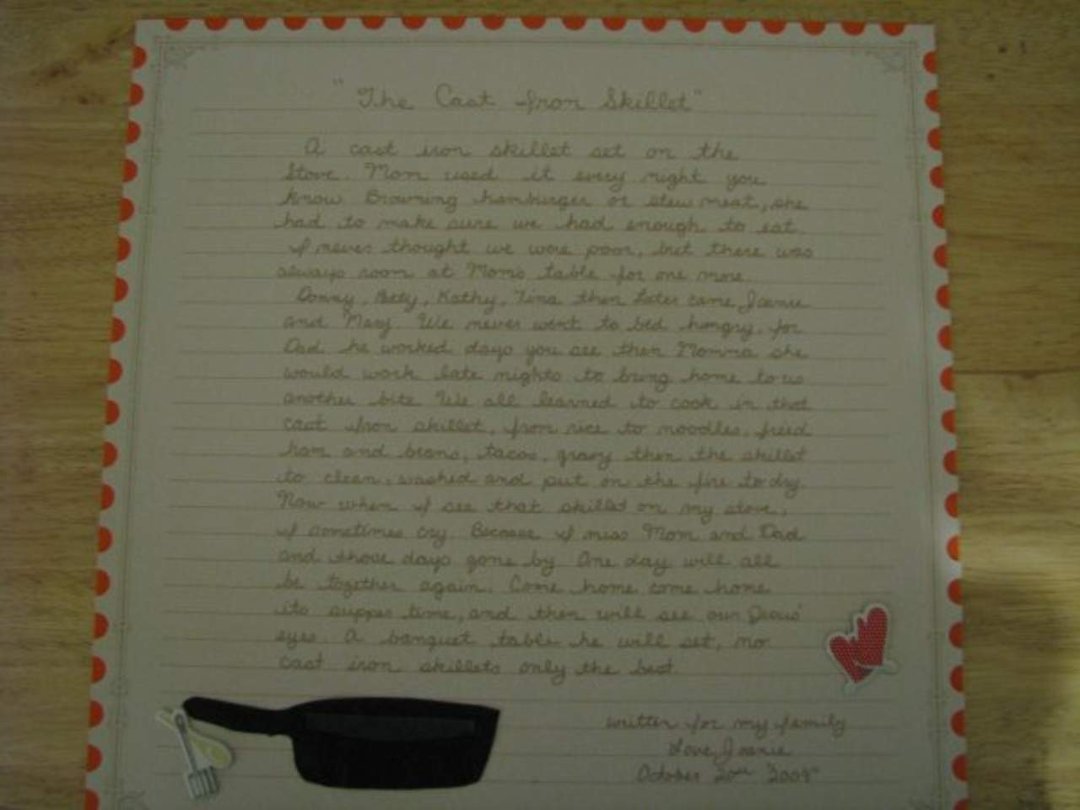 "The Cast Iron Skillet"
A cast iron skillet set on the
stove. Mom used it every night you
know. Browning hamburger or stew meat, she
had to make sure we had enough to eat.
I never thought we were poor, but there was
always room at Mom's table for one more.
Donny, Betty, Kathy, Tina then later came Joanie
and Mary. We never went to bed hungry, for
Dad he worked days you see then Momma she
would work late nights to bring home to us
another bite. We all learned to cook in that
cast iron skillet, from rice to noodles, fried
ham and beans, tacos, gravy then the skillet
to clean, washed and put on the fire to dry.
Now when I see that skillet on my stove,
I sometimes cry. Because I miss Mom and Dad
and those days gone by. One day will all
be together again. Come home, come home
its supper time, and then will see our Jesus'
eyes. A banquet table he will set, no
cast iron skillets only the best.
written for my family
Love, Joanie
October 20th